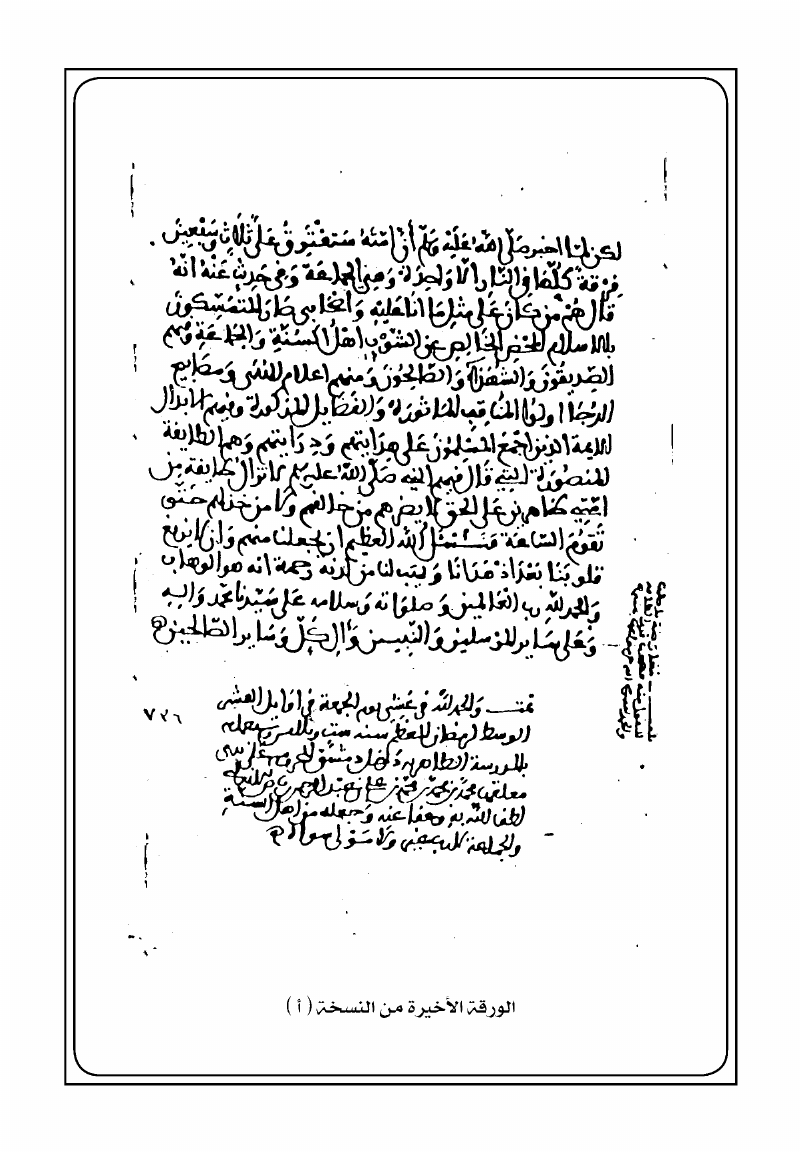 لكن لما اخبر صلى الله عليه وسلم أن امته ستفترق على ثلاث وسبعين
فرقة كلها في النار الا واحدة وهي الجماعة وفي حديث عنه انه
قال هم من كان على مثل ما انا عليه واصحابي صار المتمسكون
بالاسلام المحض الخالص عن الشوب اهل السنة والجماعة وفيهم
الصديقون والشهداء والصالحون ومنهم اعلام الهدى ومصابيح
الدجا اولوا المناقب المأثورة والفضايل المذكورة وفيهم الابدال
الايمة الذين اجمع المسلمون على هدايتهم ودرايتهم وهم الطايفة
المنصورة قال فيهم النبي صلى الله عليه وسلم لا تزال طايفة من
امتي ظاهرين على الحق لا يضرهم من خالفهم ولا من خذلهم حتى
تقوم الساعة فنسئل الله العظيم ان يجعلنا منهم وان لا يزيغ
قلوبنا بعد اذ هدانا ويهب لنا من لدنه رحمة انه هو الوهاب
والحمد لله رب العالمين وصلواته وسلامه على سيدنا محمد واله
وعلى ساير المرسلين والنبيين وال كل وساير الصالحين
تمت والحمد لله في عشي يوم الجمعة في اوايل العشر
الوسط لرمضان المعظم سنة ست وثلاثين وسبعمايه
بالمدرسة الظاهرية داخل دمشق المحروسة على يدي
معلقها محمد بن محمد بن محمد بن علي بن عبد الرحمن
لطف الله به وعفا عنه وجعله من اهل السنة
والجماعة
٧٣٦
الورقة الأخيرة من النسخة ( أ )